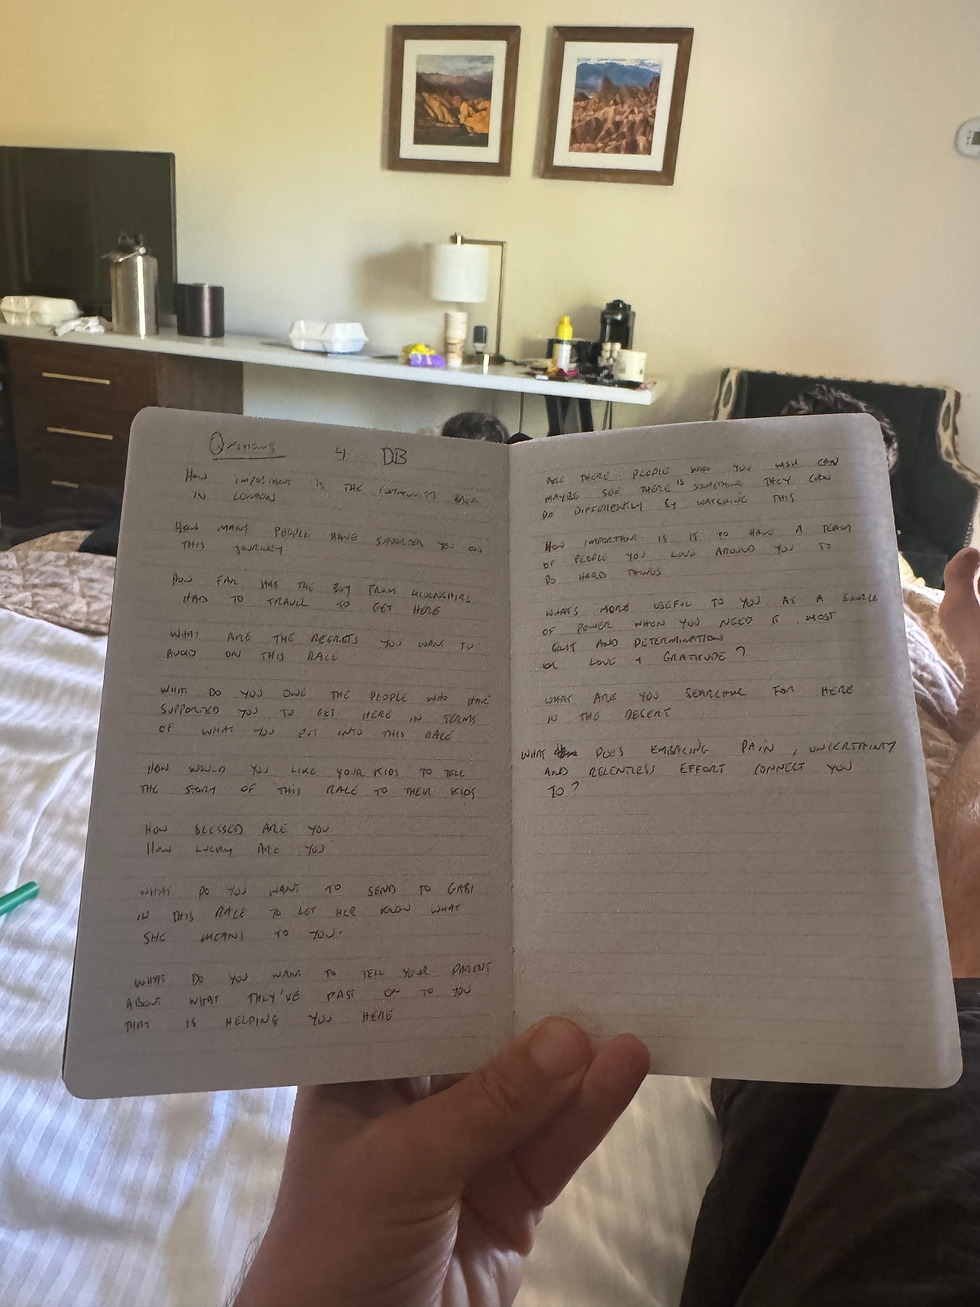 Questions 4 DB
HOW IMPORTANT IS THE COMMUNITY BACK
IN LONDON
HOW MANY PEOPLE HAVE SUPPORTED YOU ON
THIS JOURNEY
HOW FAR HAS THE BOY FROM
HAD TO TRAVEL TO GET HERE
WHAT ARE THE REGRETS YOU WANT TO
AVOID ON THIS RACE
WHAT DO YOU OWE THE PEOPLE WHO HAVE
SUPPORTED YOU TO GET HERE IN TERMS
OF WHAT YOU PUT INTO THIS RACE
HOW WOULD YOU LIKE YOUR KIDS TO TELL
THE STORY OF THIS RACE TO THEIR KIDS
HOW BLESSED ARE YOU
HOW LUCKY ARE YOU
WHAT DO YOU WANT TO SEND TO GABI
IN THIS RACE TO LET HER KNOW WHAT
SHE MEANS TO YOU.
WHAT DO YOU WANT TO TELL YOUR PARENTS
ABOUT WHAT THEY'VE PAST ON TO YOU
THAT IS HELPING YOU HERE
ARE THERE PEOPLE WHO YOU WISH CAN
MAYBE SEE THERE IS SOMETHING THEY CAN
DO DIFFERENTLY BY WATCHING THIS
HOW IMPORTANT IS IT TO HAVE A TEAM
OF PEOPLE YOU LOVE AROUND YOU TO
DO HARD THINGS
WHATS MORE USEFUL TO YOU AS A SOURCE
OF POWER WHEN YOU NEED IT MOST
GRIT AND DETERMINATION
OR LOVE + GRATITUDE?
WHAT ARE YOU SEARCHING FOR HERE
IN THE DESERT
WHAT DOES EMBRACING PAIN, UNCERTAINTY
AND RELENTLESS EFFORT CONNECT YOU
TO?